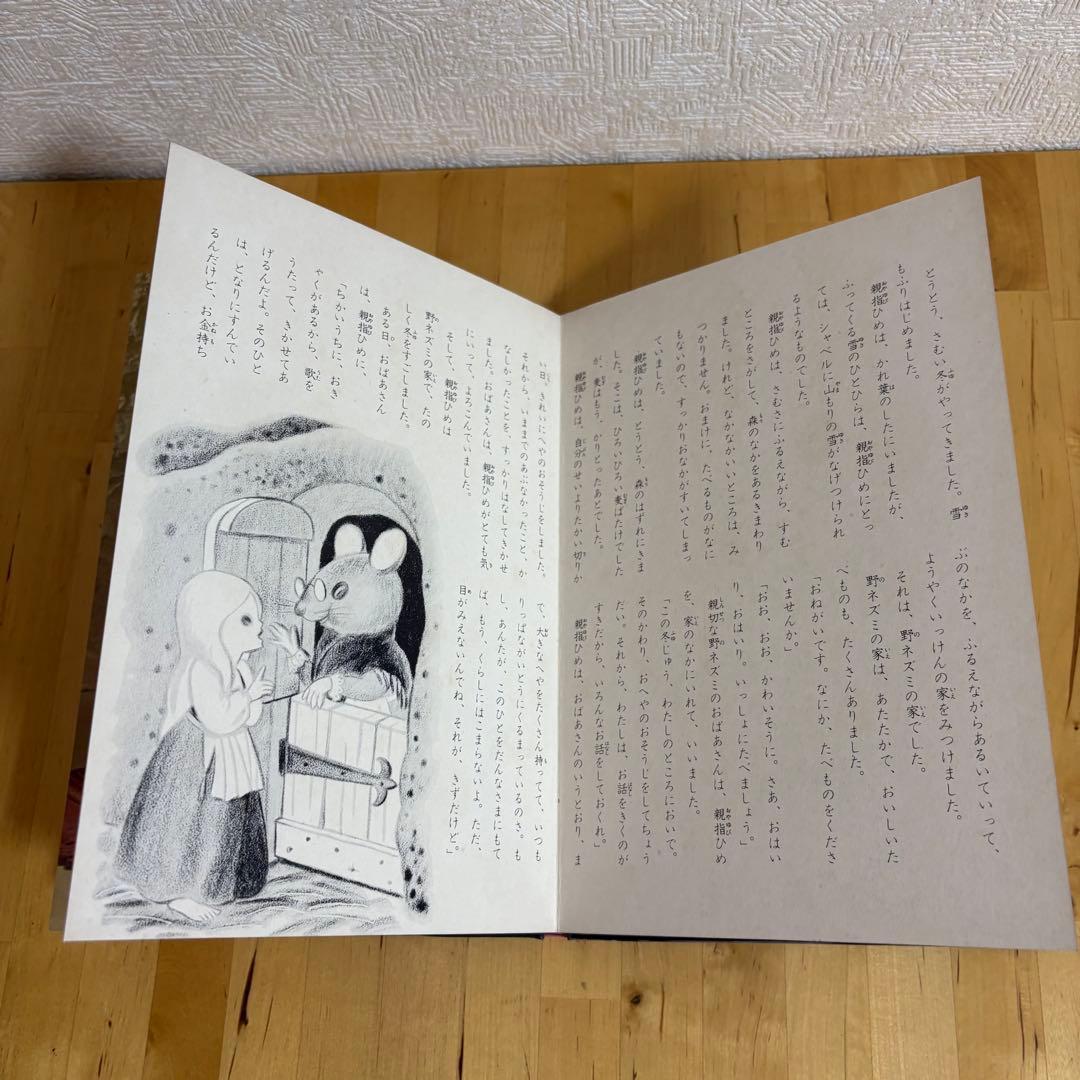 とうとう、さむい冬がやってきました。雪
もふりはじめました。
親指ひめは、かれ葉のしたにいましたが、
ふってくる雪のひとひらは、親指ひめにとっ
ては、シャベルに山もりの雪がなげつけられ
るようなものでした。
親指ひめは、さむさにふるえながら、すむ
ところをさがして、森のなかをあるきまわり
ました。けれど、なかなかいいところは、み
つかりません。おまけに、たべるものがなに
もないので、すっかりおなかがすいてしまっ
ていました。
親指ひめは、とうとう、森のはずれにきま
した。そこは、ひろいひろい麦ばたけでした
が、麦はもう、かりとったあとでした。
親指ひめは、自分のせいよりたかい切りか
ぶのなかを、ふるえながらあるいていって、
ようやくいっけんの家をみつけました。
それは、野ネズミの家でした。
野ネズミの家は、あたたかで、おいしいた
べものも、たくさんありました。
「おねがいです。なにか、たべものをくださ
いませんか。」
「おお、おお、かわいそうに。さあ、おはい
り、おはいり。いっしょにたべましょう。」
親切な野ネズミのおばあさんは、親指ひめ
を、家のなかにいれて、いいました。
「この冬じゅう、わたしのところにおいで。
そのかわり、おへやのおそうじをしてちょう
だい。それから、わたしは、お話をきくのが
すきだから、いろんなお話をしておくれ。」
親指ひめは、おばあさんのいうとおり、ま
い日、きれいにへやのおそうじをしました。
それから、いままでのあぶなかったこと、か
なしかったことを、すっかりはなしてきかせ
ました。おばあさんは、親指ひめがとても気
にいって、よろこんでいました。
そして、親指ひめは
野ネズミの家で、たの
しく冬をすごしました。
ある日、おばあさん
は、親指ひめに、
「ちかいうちに、おき
ゃくがあるから、歌を
うたって、きかせてあ
げるんだよ。そのひと
は、となりにすんでい
るんだけど、お金持ち
で、大きなへやをたくさん持ってて、いつも
りっぱながいとうにくるまっているのさ。も
し、あんたが、このひとをだんなさまにもて
ば、もう、くらしにはこまらないよ。ただ、
目がみえないんでね、それが、きずだけど。」